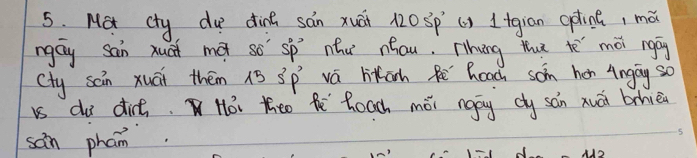 5. Một cty dự định sản xuất 120 sp' (.) 1 tgian định, mỗi
ngày sản xuất một số sp' như nhau. Nhưng thực tế mỗi ngày
cty sản xuất thêm 15 sp' và thành kế hoạch sớm hơn 4ngày so
vs dự định. Hỏi theo kế hoạch mỗi ngày cty sản xuất bnhiêu
sản phẩm.